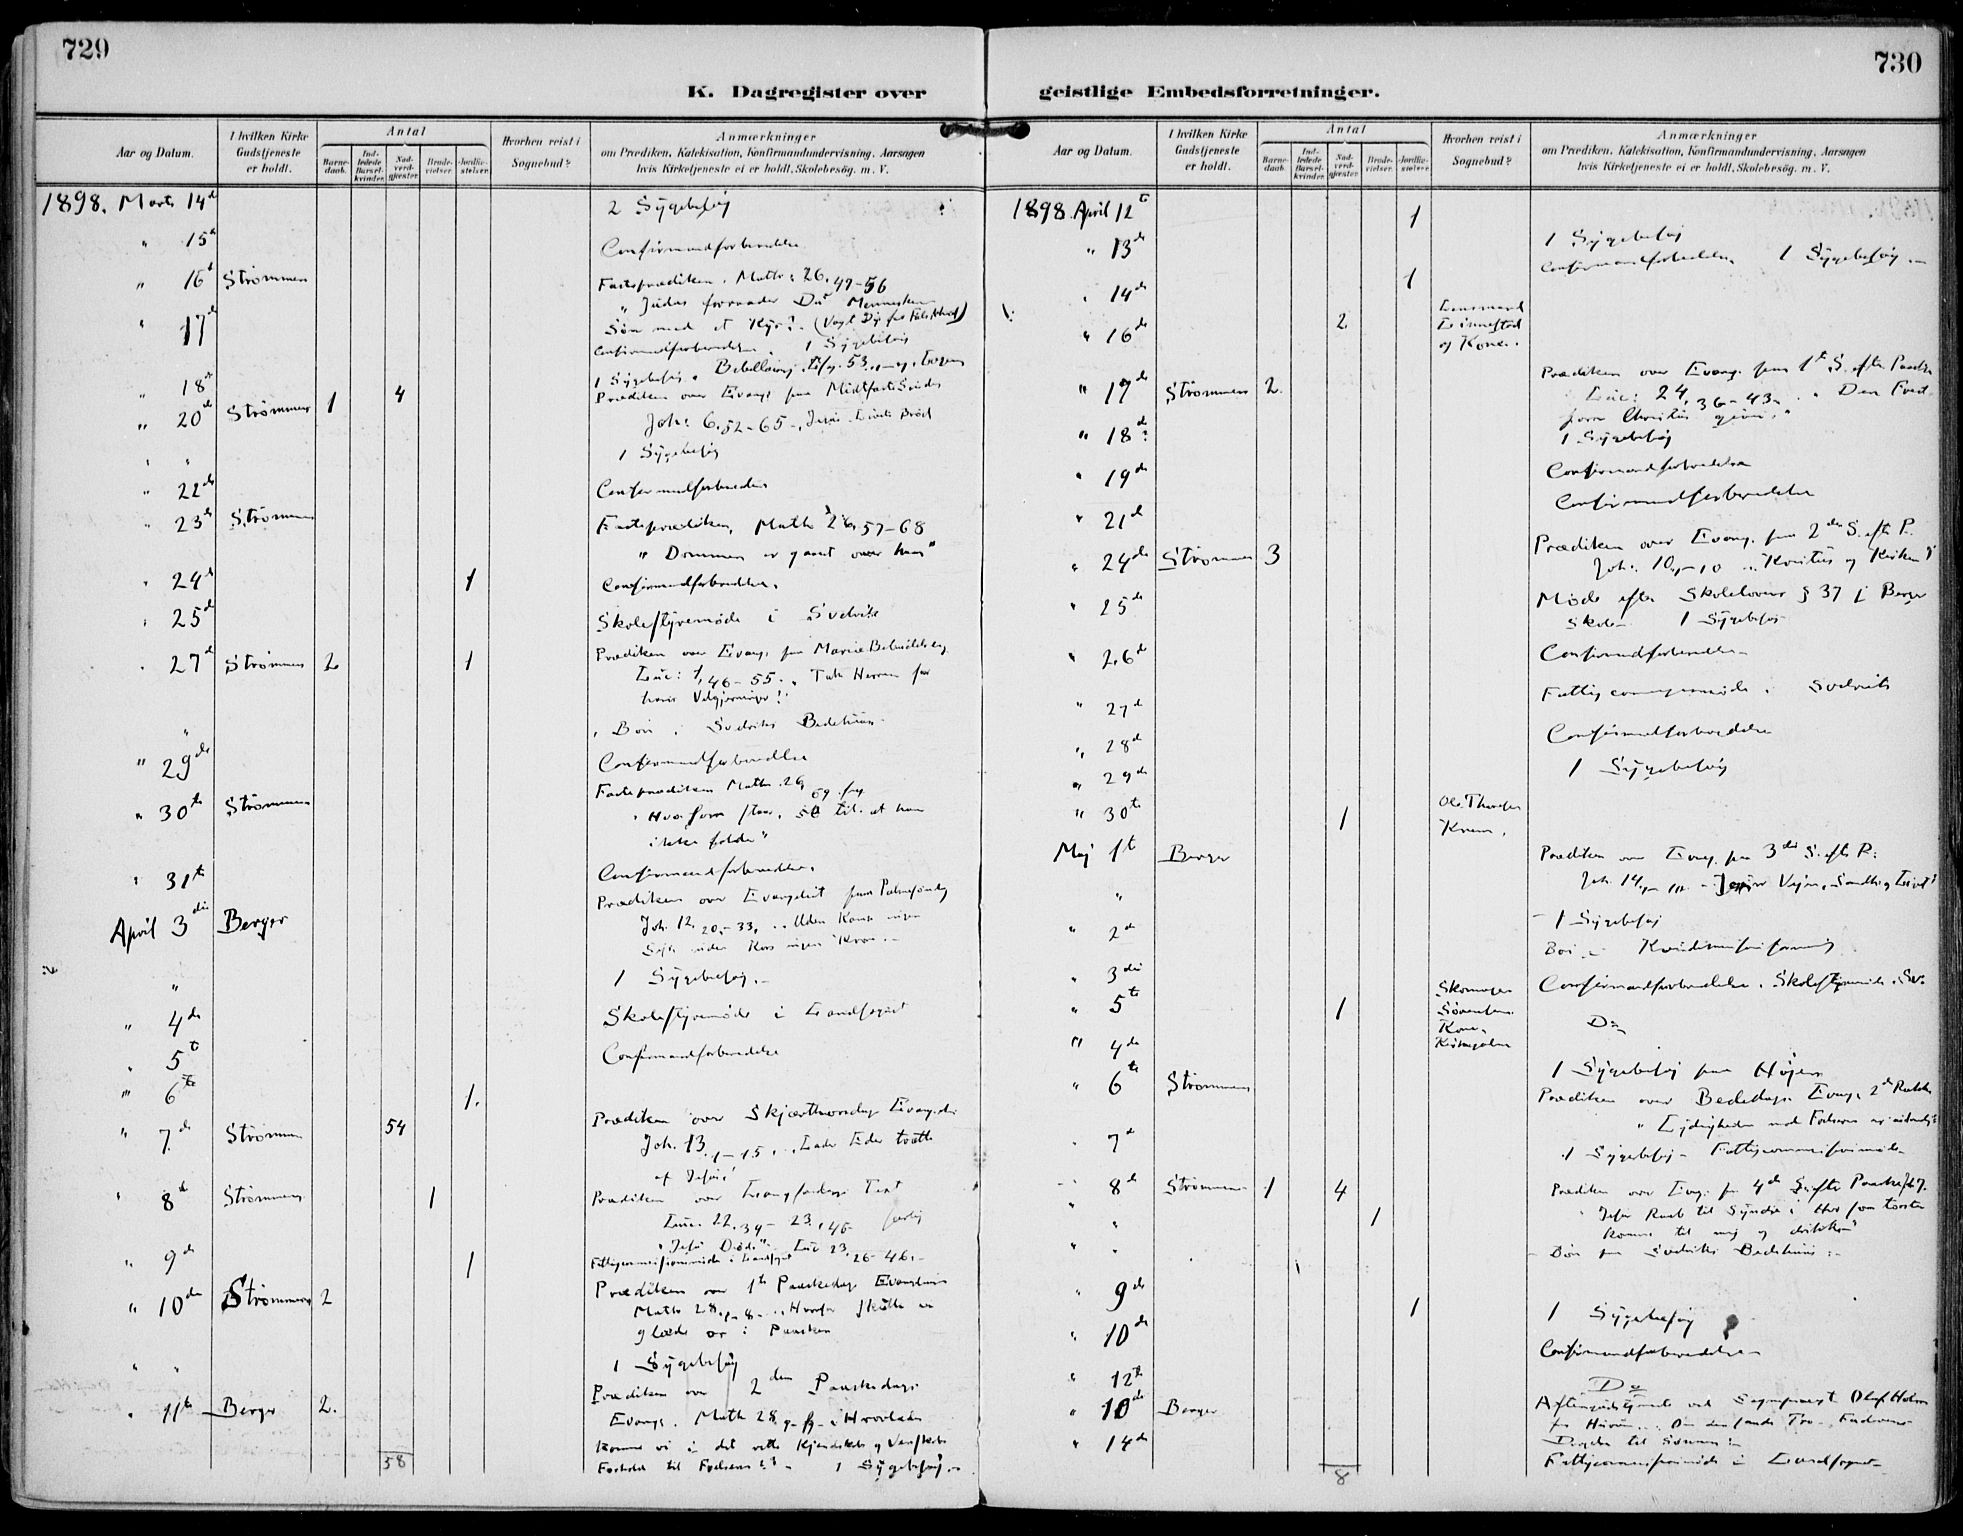 729
K. Dagregister over
Aar og Datum.
I hvilken Kirke Gudstjeneste er holdt.
Antal
Barne-daab.
Ind-ledede Barsel-kvinder.
Nad-verd-gjæster.
Brude-vielser.
Jordfæ-stelser.
Hvorhen reist i Sognebud?
Anmærkninger
om Prædiken, Katekisation, Konfirmandundervisning, Aarsagen
hvis Kirketjeneste ei er holdt, Skolebesøg. m. V.
1898. Marts 14d 2 Sygebesøg
" 15d Confirmandforberedelse
" 16d Strømmen Fasteprædiken. Matth: 26,47-56
" Judas forraader Du Menneskens
Søn med et Kys?
" 17d Confirmandforberedelse. 1 Sygebesøg
" 18d 1 Sygebesøg.
" 20d Strømmen 1 4 Prædiken over Evang. paa Midtfaste Søndag
Joh: 6,52-65
" " 1 Sygebesøg
" 22d Confirmandforberedelse
" 23d Strømmen Fasteprædiken, Matth 26,57-68
" Dommen er gaaet over ham"
" 24d 1 Confirmandforberedelse.
" 25d Skolestyremøde i Svelvik
" 27d Strømmen 2 1 Prædiken over Evang. paa Mariæ Bebudelsesdag
Luc: 1,46-55. " Tak Herren for
hans Velgjerninger!"
" Bøn i Svelviks Bedehuus
" 29de Confirmandforberedelse
" 30te Strømmen Fasteprædiken Matth. 26,69
" Hvo som staar, se til at han
ikke falder"
" 31te Confirmandforberedelse.
April 3die Berger Prædiken over Evangeliet paa Palmesøndag
Joh. 12,20-33.
" 1 Sygebesøg.
" 4de Skolestyremøde i Landsognet
" 5te Confirmandforberedelse
" 6te 1.
" 7de Strømmen 54 Prædiken over Skjærthorsdags Evang.
Joh. 13,1-15. " Lader Eder tvætte
af Jesus!
" 8de Strømmen 1 Prædiken over Langfredags Text
Luc. 22,39 - 23,46
" Jesu Død" Luc 23,26-46.
" 9de 1 Fattigcommissionsmøde i Landsognet
" 10de Strømmen 2 Prædiken over 1te Paaskedags Evangelium
Matth 28,1-8. " Hvorfor skulle vi
glæde os i Paasken
" " 1 Sygebesøg
" 11te Berger 2. Prædiken over 2den Paaskedags
Evang. Matth 28
komme vi i det rette Kjendskabs og Venskabs
Forhold til Frelseren?" - 1 Sygebesøg.
58
730
geistlige Embedsforretninger.
Aar og Datum.
I hvilken Kirke Gudstjeneste er holdt.
Antal
Barne-daab.
Ind-ledede Barsel-kvinder.
Nad-verd-gjæster.
Brude-vielser.
Jordfæ-stelser.
Hvorhen reist i Sognebud?
Anmærkninger
om Prædiken, Katekisation, Konfirmandundervisning, Aarsagen
hvis Kirketjeneste ei er holdt, Skolebesøg. m. V.
1898. April 12te 1 1 Sygebesøg
" 13de Confirmandforberedelse. 1 Sygebesøg
" 14de 1
" 16de 2 Lensmand
Linnestad
og Kone.
" 17de Strømmen 2. Prædiken over Evang. paa 1te S. efter Paaske
Luc: 24,36-43. " Den Fred,
som Christus giver."
" 18de 1 Sygebesøg
" 19de Confirmandforberedelse
" 21de Confirmandforberedelse
" 24de Strømmen 3 Prædiken over Evang. paa 2den S. efter P.
Joh. 10,1-10 " Kristus og Kirken"
" 25de Møde efter Skolelovens § 37 i Berger
Skole 1 Sygebesøg
" 26de Confirmandforberedelse
" 27de Fattigcommissionsmøde i Svelvik
" 28de Confirmandforberedelse
" 29de 1 Sygebesøg
" 30te 1 Ole
Maj 1te Berger Prædiken over Evang. paa 3die S. efter P:
Joh. 14,1-11 - Jesus Vejen, Sandhed og Livet"
" 1 Sygebesøg
" 2de Bøn i Kvindemissionsforening
" 3die Confirmandforberedelse. Skolestyremøde i Sv.
" 5te 1 Skomager
Sørensens
Kone,
" 4de Do
" 6te Strømmen 1 Sygebesøg paa Højen
Prædiken over Bededags Evang. 2de Række
" 7de 1 Sygebesøg - Fattigcommissionsmøde
" 8de Strømmen 1 4 Prædiken over Evang. paa 4de S. efter Paaske
" Jesu Raab til Syndere: Hvo som tørster
komme til mig og drikke"
" " 1
" " Bøn paa Svelviks Bedehuus
" 9de 1 1 Sygebesøg
" 10de Confirmandforberedelse
" 12te Do
" 10de Berger Aftengudstjeneste ved Sogneprest Olaf Holm
" 14de Fattigcommissionsmøde i Landsognet
8